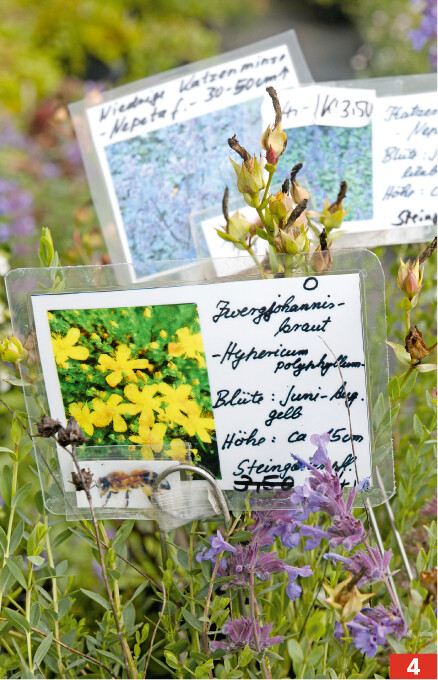 Niedrige Katzenminze
- Nepeta f. - 30-50cm↑
1K 3.50
Katzen
- Nep
Blüte: Ju
lila
Höhe: c
Steing
Zwergjohannis-
kraut
- Hypericum
polyphyllum
Blüte: Juni-Aug.
gelb
Höhe: ca. 15cm
3,50
4